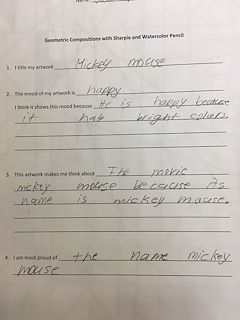 Name
Geometric Compositions with Sharpie and Watercolor Pencil
1. I title my artwork Mickey mouse
2. The mood of my artwork is happy
I think it shows this mood because He is happy because
it has bright colors
3. This artwork makes me think about The movie
mickey mouse because its
name is mickey mouse.
4. I am most proud of the name mickey
mouse